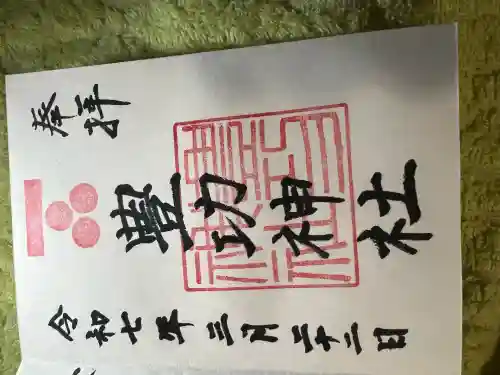 奉拝
豊功神社
令和七年三月二十二日